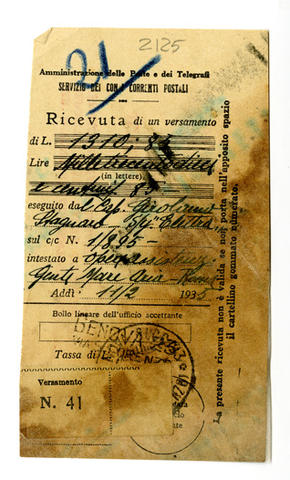 21
2125
Amministrazione delle Poste e dei Telegrafi
SERVIZIO DEI CONTI CORRENTI POSTALI
Ricevuta di un versamento
di L. 1310,85
Lire Milletrecentodieci
(in lettere)
e centesimi 85
eseguito da l Cap. Girolamo
Stagnaro - "Elettra"
sul c/c N. 1/895-
intestato a Opera assistenz.
Gente Mare Aria - Roma
Addì 11/2 1935
Bollo lineare dell'ufficio accettante
GENOVA
Tassa di L.
Versamento
N. 41
La presente ricevuta non è valida se non porta nell'apposito spazio
il cartellino gommato numerato.